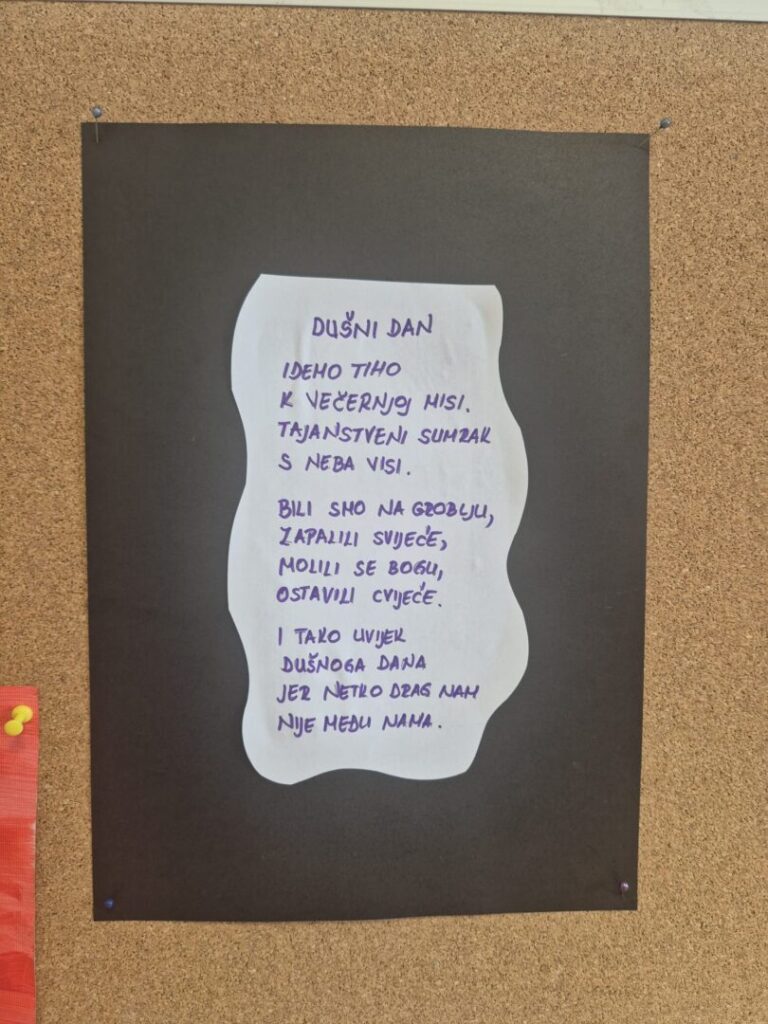 DUŠNI DAN
IDEMO TIHO
K VEČERNJOJ MISI.
TAJANSTVENI SUMRAK
S NEBA VISI.
BILI SMO NA GROBLJU,
ZAPALILI SVIJEĆE,
MOLILI SE BOGU,
OSTAVILI CVIJEĆE.
I TAKO UVIJEK
DUŠNOGA DANA
JER NETKO DRAG NAM
NIJE MEĐU NAMA.